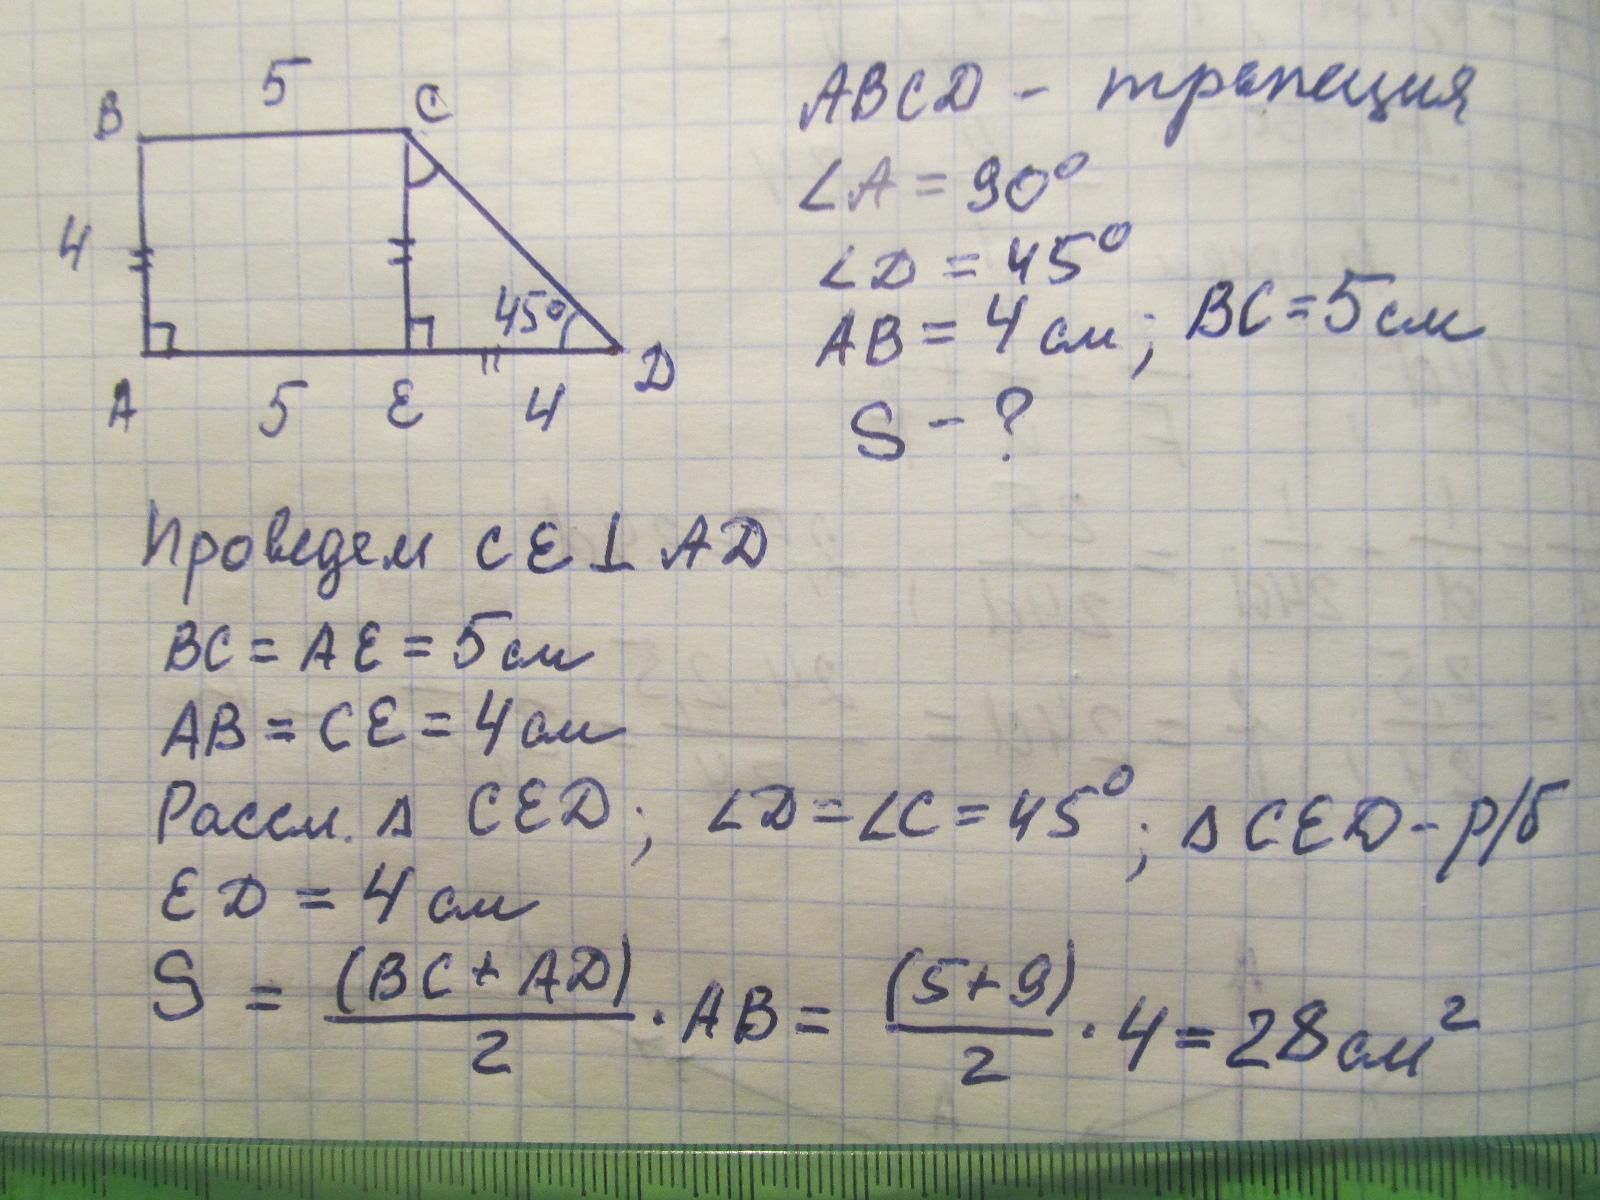 5
B C
4
45°
A 5 E 4 D
ABCD - трапеция
∠A = 90°
∠D = 45°
AB = 4 см; BC = 5 см
S - ?
Проведем CE⊥AD
BC = AE = 5 см
AB = CE = 4 см
Рассм. Δ CED; ∠D = ∠C = 45°; Δ CED - р/б
ED = 4 см
S = (BC + AD)/2 · AB = (5+9)/2 · 4 = 28 см²